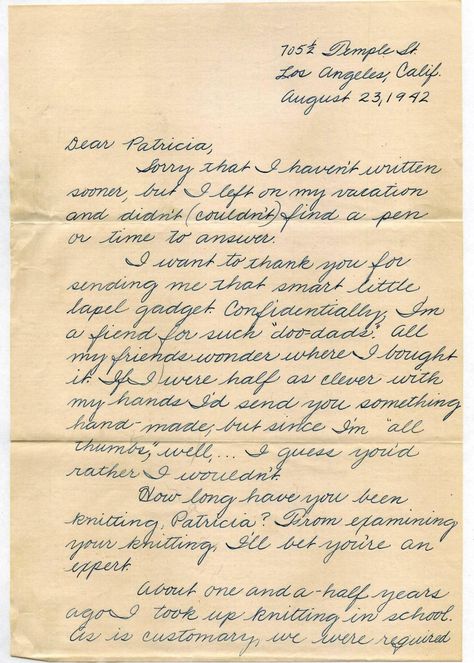 705½ Temple St.
Los Angeles, Calif.
August 23, 1942
Dear Patricia,
Sorry that I haven't written
sooner, but I left on my vacation
and didn't (couldn't) find a pen
or time to answer.
I want to thank you for
sending me that smart little
lapel gadget. Confidentially, I'm
a fiend for such "doo-dads". All
my friends wonder where I bought
it. If I were half as clever with
my hands I'd send you something
hand-made, but since I'm "all
thumbs," well, ... I guess you'd
rather I wouldn't.
How long have you been
knitting, Patricia? From examining
your knitting, I'll bet you're an
expert.
About one and a-half years
ago I took up knitting in school.
As is customary, we were required